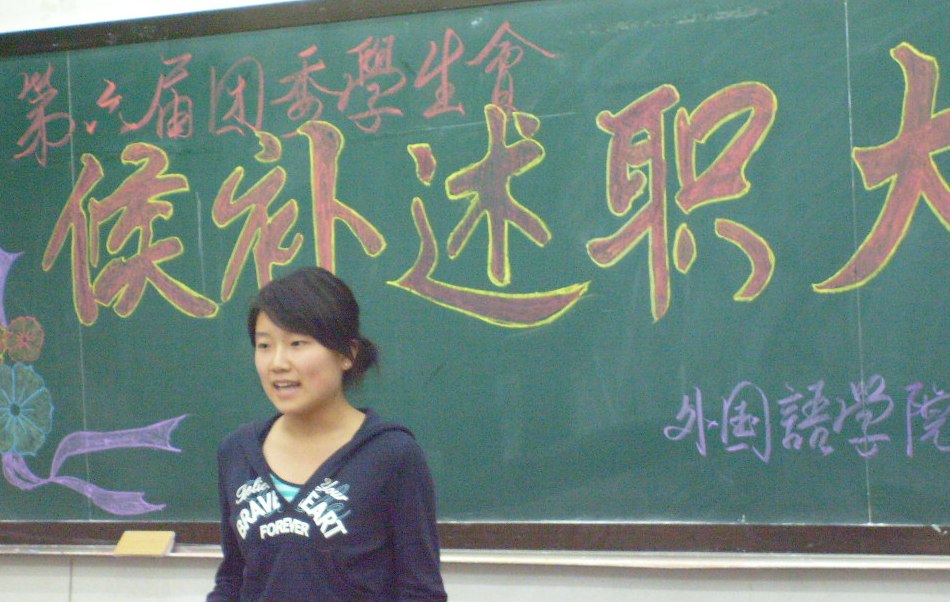 第六届团委學生會
候补述职大
外国語学院
BRAVE HEART
FOREVER